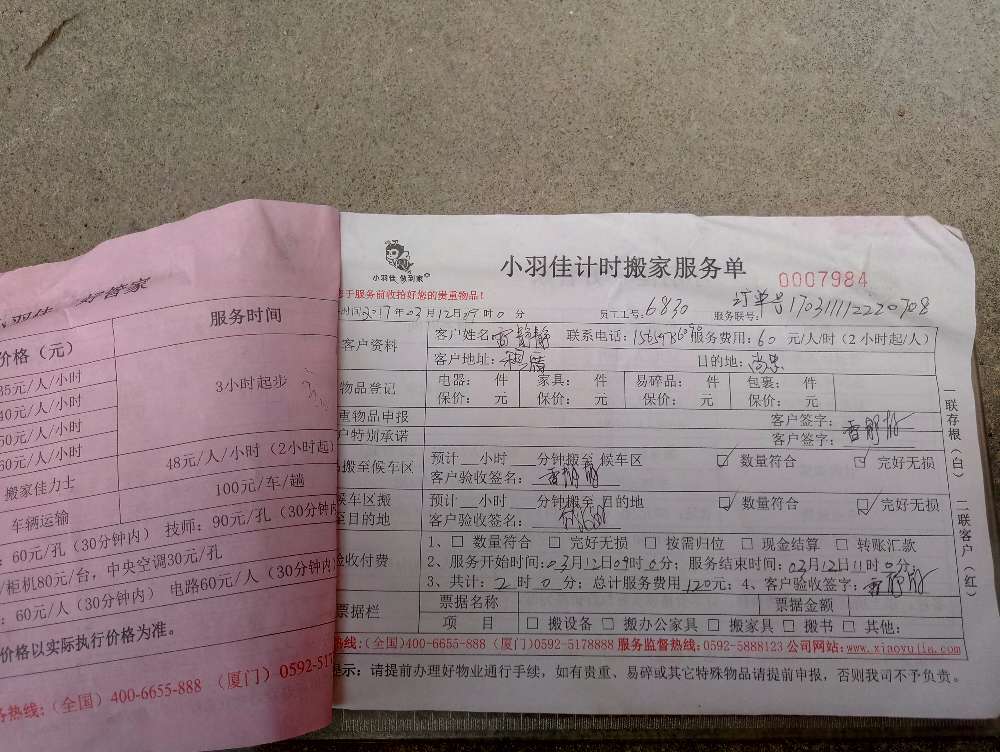 好管家
价格（元）
服务时间
35元/人/小时
40元/人/小时
50元/人/小时
60元/人/小时
3小时起步
搬家佳力士
48元/人/小时（2小时起）
车辆运输
100元/车/趟
：60元/孔（30分钟内） 技师：90元/孔（30分钟内
柜机80元/台，中央空调30元/孔
：60元/人（30分钟内） 电路60元/人（30分钟内
价格以实际执行价格为准。
务热线：（全国）400-6655-888 （厦门）0592-517
小羽佳 做到家
小羽佳计时搬家服务单
0007984
于服务前收拾好您的贵重物品！
时间2017年03月12日09时0分 员工工号：6830 服务联号： 订单号
客户资料
客户姓名： 静 联系电话： 服务费用：60 元/人/时（2小时起/人）
客户地址： 目的地：
物品登记
电器： 件 家具： 件 易碎品： 件 包裹： 件
保价： 元 保价： 元 保价： 元 保价： 元
重物品申报 客户签字：
户特别承诺 客户签字：
搬至候车区
预计 小时 分钟搬至 候车区 ☑ 数量符合 ☑ 完好无损
客户验收签名：
候车区搬
至目的地
预计 小时 分钟搬至 目的地 ☑ 数量符合 ☑ 完好无损
客户验收签名：
验收付费
1、□ 数量符合 □ 完好无损 □ 按需归位 □ 现金结算 □ 转账汇款
2、服务开始时间：03月12日09时0分；服务结束时间：03月12日11时0分
3、共计：2时0分；总计服务费用120元；4、客户验收签字：
票据栏
票据名称 票据金额
项 目 □ 搬设备 □ 搬办公家具 □ 搬家具 □ 搬书 □ 其他：
热线：（全国）400-6655-888（厦门）0592-5178888 服务监督热线：0592-5888123 公司网站：www.xiaoyujia.com
提示：请提前办理好物业通行手续，如有贵重、易碎或其它特殊物品请提前申报，否则我司不予负责。
一联存根（白） 二联客户（红）